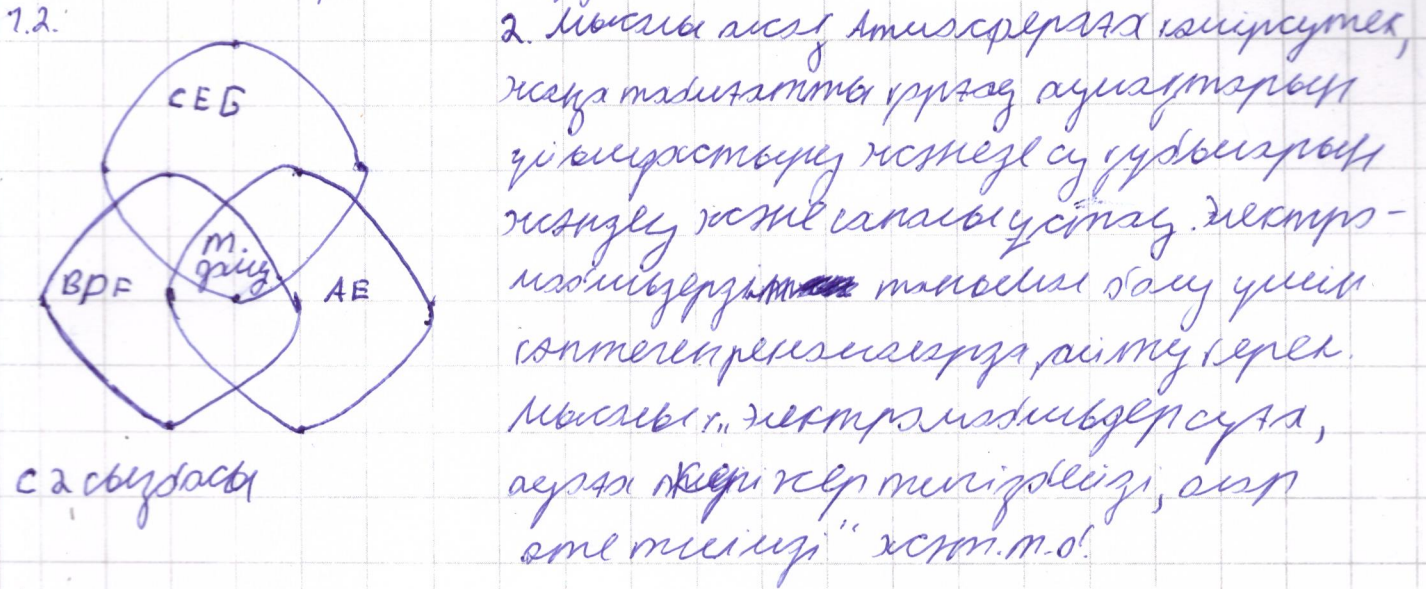 1.2.
CEG
BDF
т. дамуы
AE
C2 сызбасы
2. Мысалы жасыл Атмосфераға көмірсутек,
жаңа табиғатты қорғау аумақтарын
ұйымдастыру және су құбырларын
жөндеу және сапалы ұстау. Электро-
мобильдердің танымал болу үшін
көптеген рекламаларда айту керек.
Мысалы: „электромобильдер суға,
ауаға кері әсер тигізбейді, олар
өте тиімді“ және т.б.